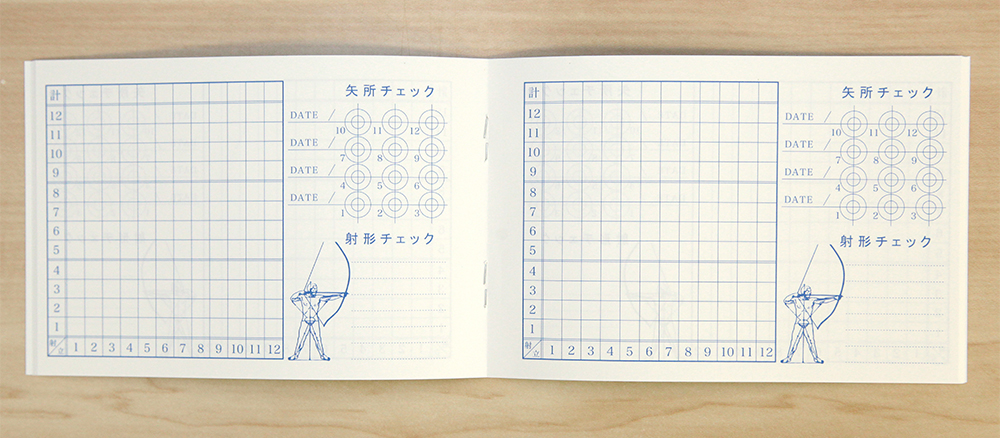 計
12
11
10
9
8
7
6
5
4
3
2
1
射/立 1 2 3 4 5 6 7 8 9 10 11 12
矢所チェック
DATE /
10 11 12
DATE /
7 8 9
DATE /
4 5 6
DATE /
1 2 3
射形チェック
計
12
11
10
9
8
7
6
5
4
3
2
1
射/立 1 2 3 4 5 6 7 8 9 10 11 12
矢所チェック
DATE /
10 11 12
DATE /
7 8 9
DATE /
4 5 6
DATE /
1 2 3
射形チェック